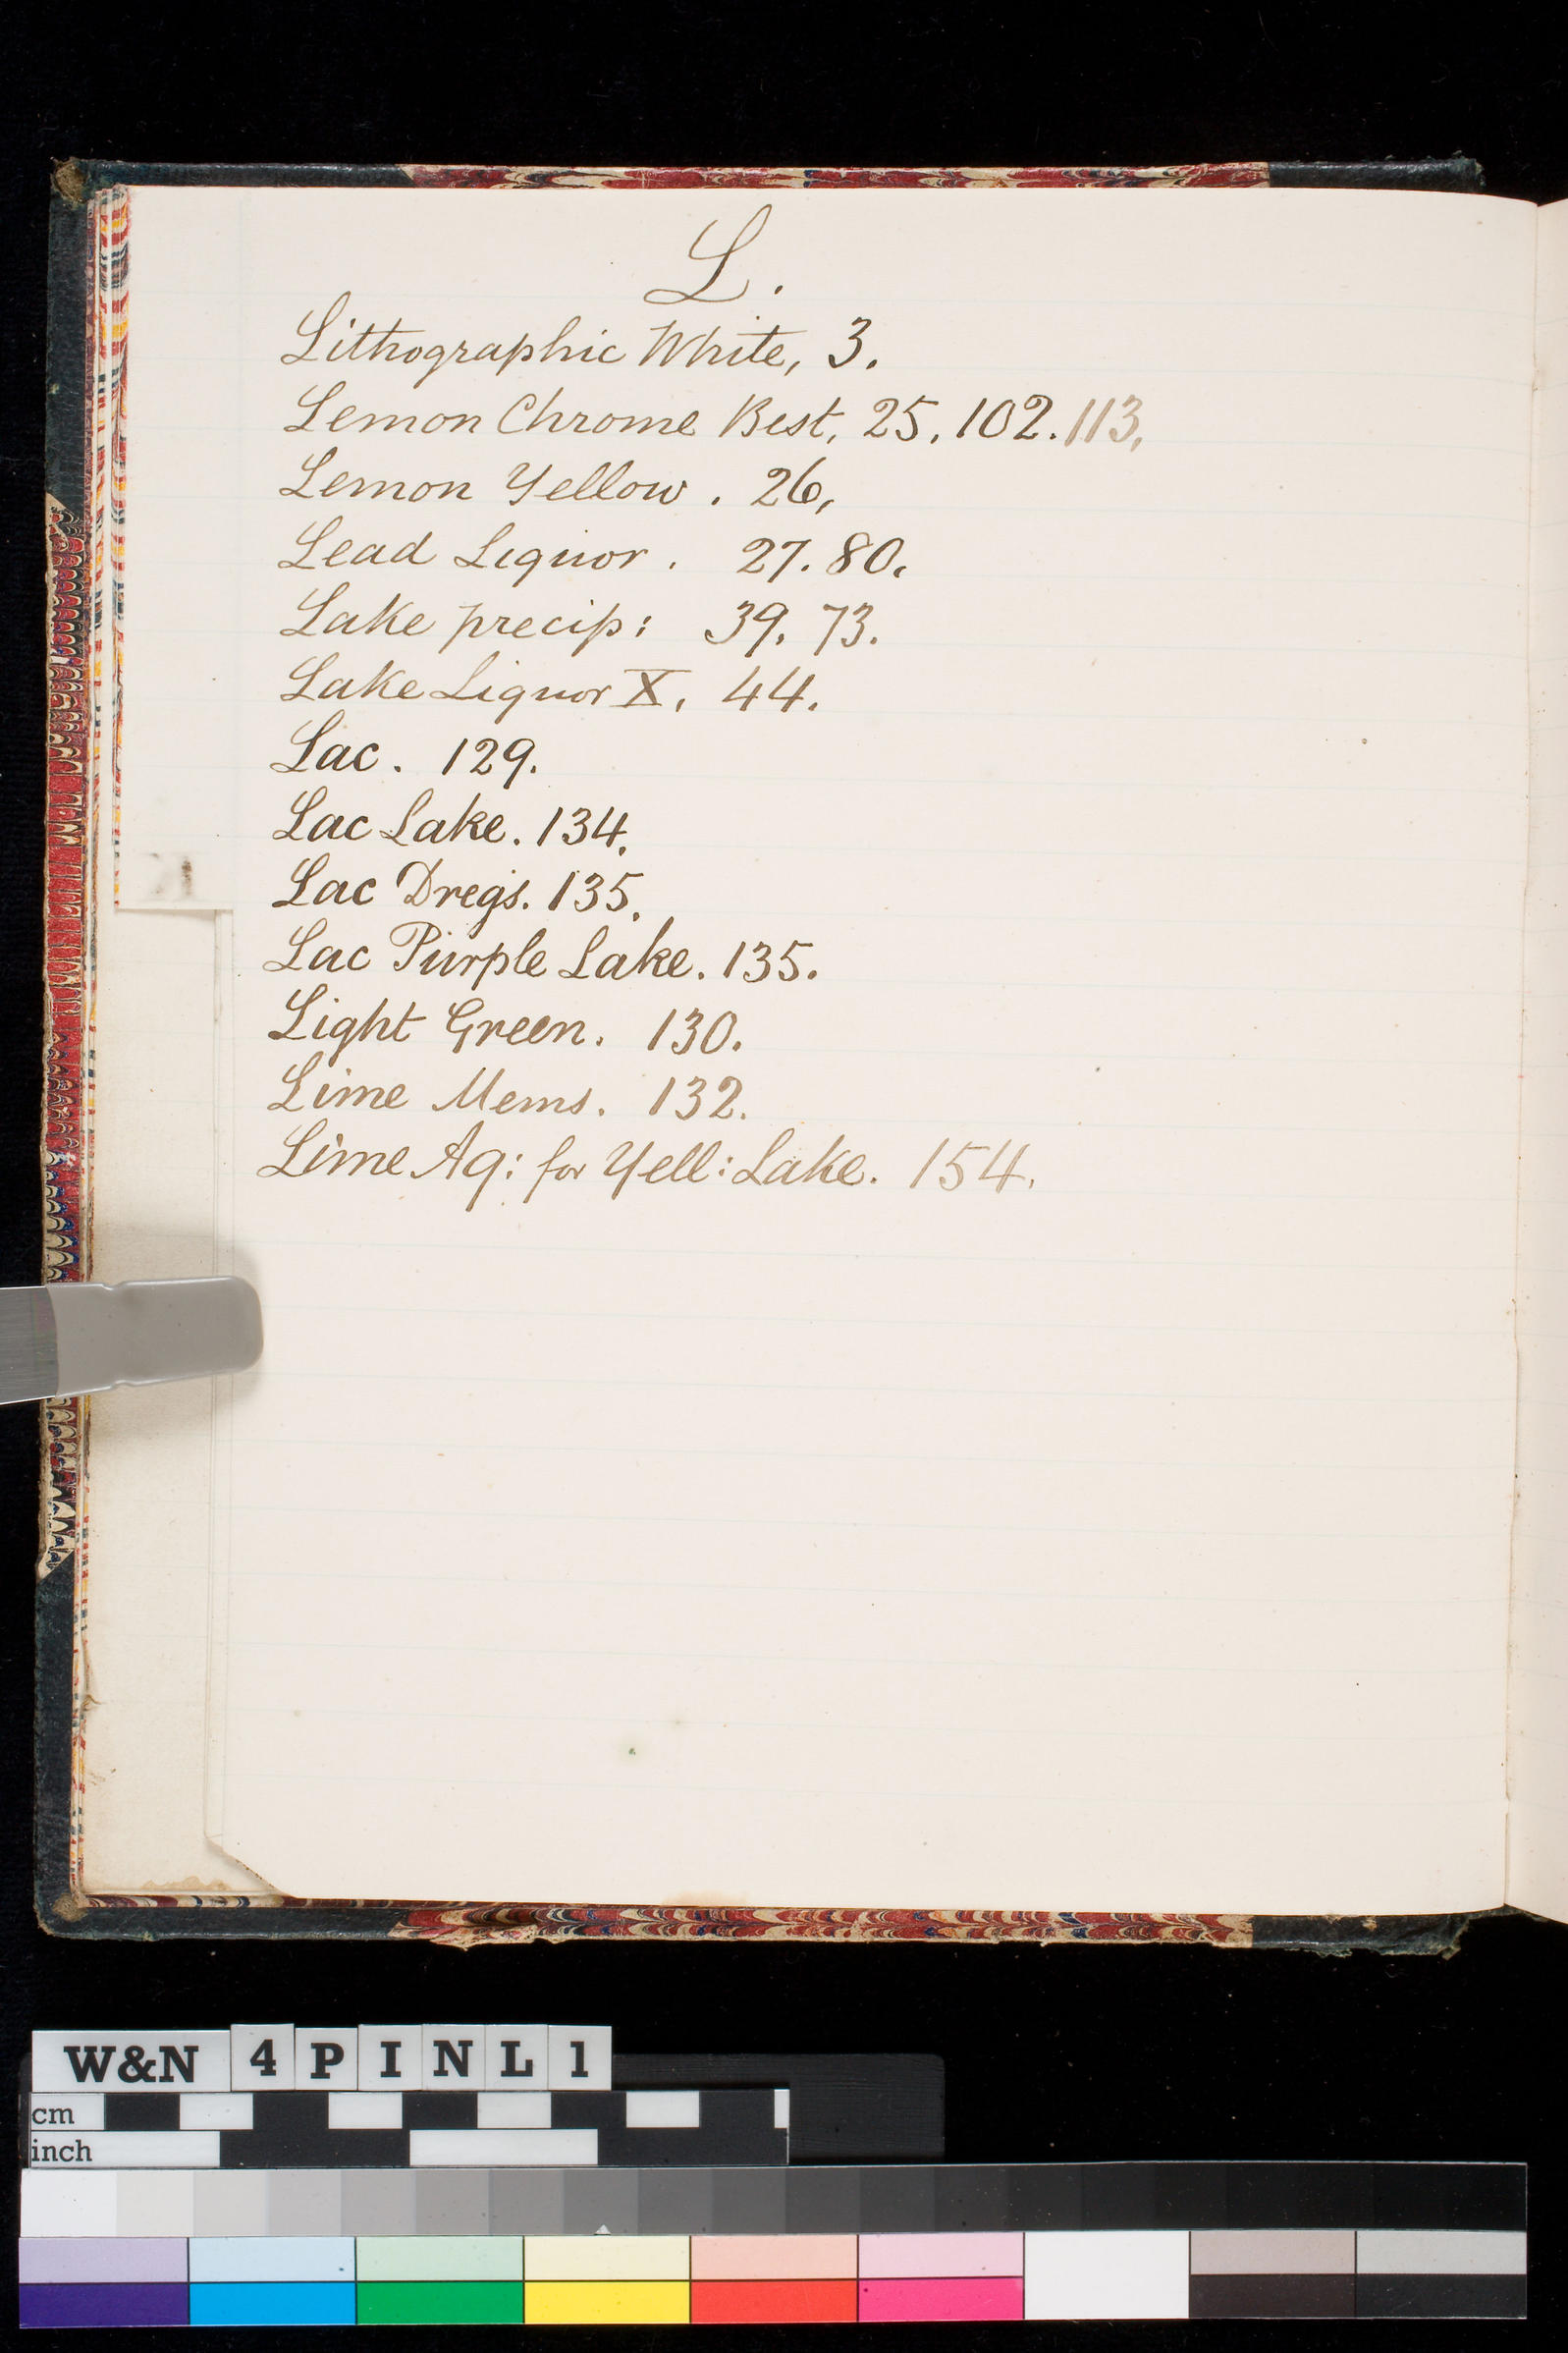 L.
Lithographic White, 3.
Lemon Chrome Best, 25, 102. 113,
Lemon Yellow. 26,
Lead Liquor. 27. 80.
Lake precip: 39. 73.
Lake Liquor X, 44.
Lac. 129.
Lac Lake. 134.
Lac Dregs. 135.
Lac Purple Lake. 135.
Light Green. 130.
Lime Mems. 132.
Lime Aq: for Yell: Lake. 154.
W&N 4 P I N L 1
cm
inch